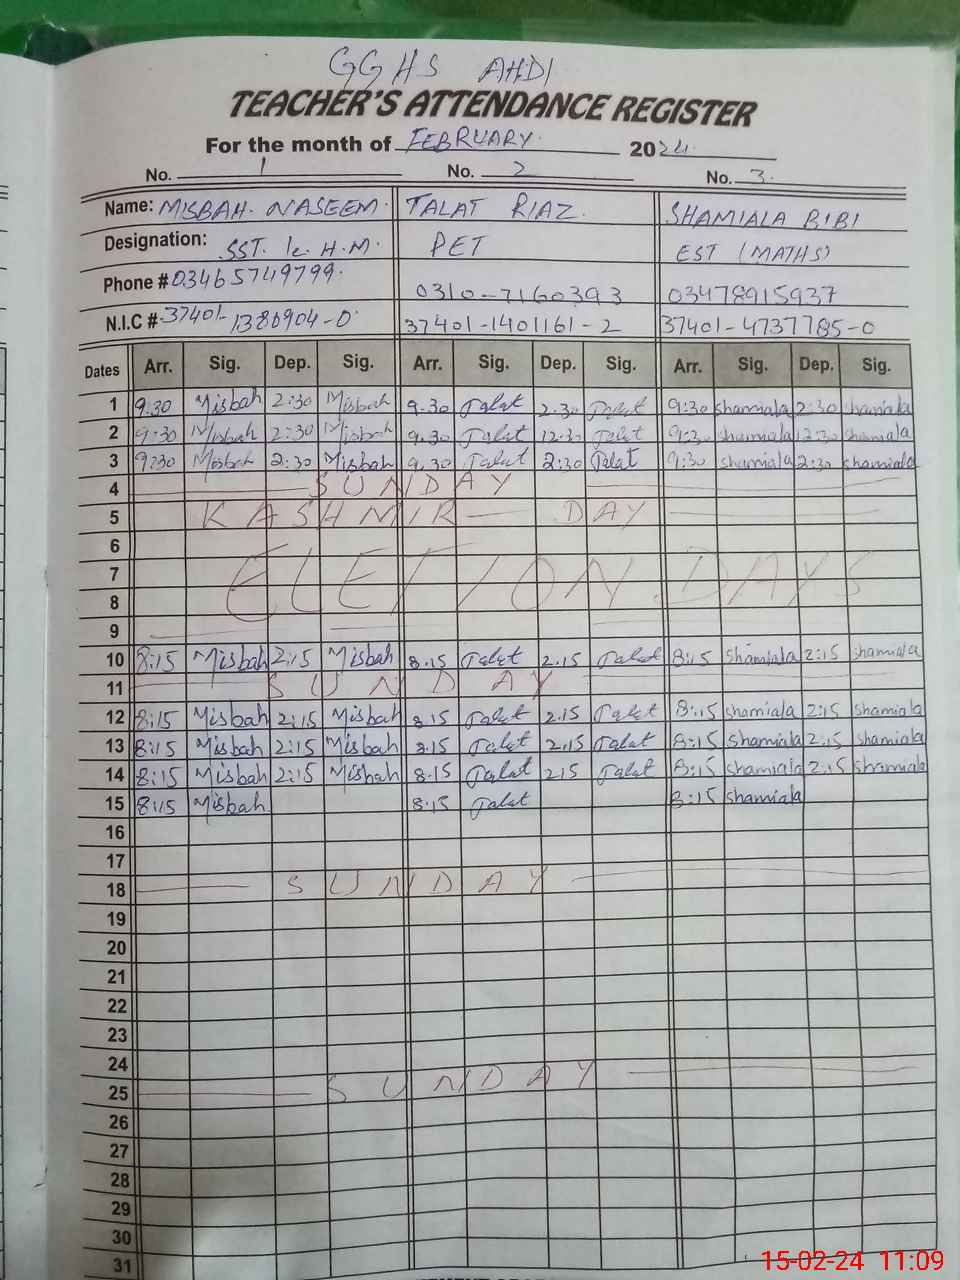 GGHS AHDI
TEACHER'S ATTENDANCE REGISTER
For the month of FEBRUARY. 2024.
No. 1 No. 2 No. 3.
Name: MISBAH. NASEEM. TALAT RIAZ. SHAMIALA BIBI
Designation: SST. H.M. PET EST (MATHS)
Phone # 03465749799. 0310-7160393 03478915937
N.I.C # 37401-1380904-0 37401-1401161-2 37401-4737785-0
Dates Arr. Sig. Dep. Sig. Arr. Sig. Dep. Sig. Arr. Sig. Dep. Sig.
1 9:30 Misbah 2:30 Misbah 9.30 Talat 2.30 Talat 9:30 Shamiala 2:30 Shamiala
2 9:30 Misbah 2:30 Misbah 9.30 Talat 12.30 Talat 9:30 Shamiala 12:30 Shamiala
3 9:30 Misbah 2:30 Misbah 9.30 Talat 2:30 Talat 9:30 Shamiala 2:30 Shamiala
4 SUNDAY
5 KASHMIR DAY
6
7 ELETION DAYS
8
9
10 8:15 Misbah 2:15 Misbah 8.15 Talat 2.15 Talat 8:15 Shamiala 2:15 Shamiala
11 SUNDAY
12 8:15 Misbah 2:15 Misbah 8.15 Talat 2.15 Talat 8:15 Shamiala 2:15 Shamiala
13 8:15 Misbah 2:15 Misbah 8.15 Talat 2.15 Talat 8:15 Shamiala 2:15 Shamiala
14 8:15 Misbah 2:15 Misbah 8.15 Talat 215 Talat 8:15 Shamiala 2:15 Shamiala
15 8:15 Misbah 8.15 Talat 8:15 Shamiala
16
17
18 SUNDAY
19
20
21
22
23
24
25 SUNDAY
26
27
28
29
30
31
15-02-24 11:09